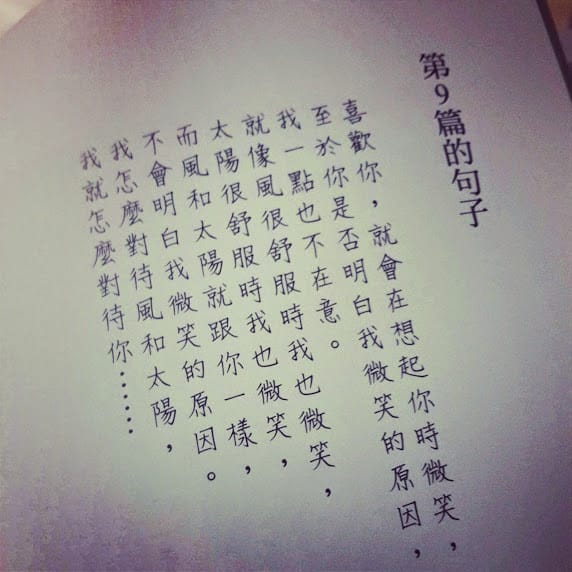 第9篇的句子
喜歡你，就會在想起你時微笑，
至於你是否明白我微笑的原因，
我一點也不在意。
就像風很舒服時我也微笑，
太陽很舒服時我也微笑，
而風和太陽就跟你一樣，
不會明白我微笑的原因。
我怎麼對待風和太陽，
我就怎麼對待你……